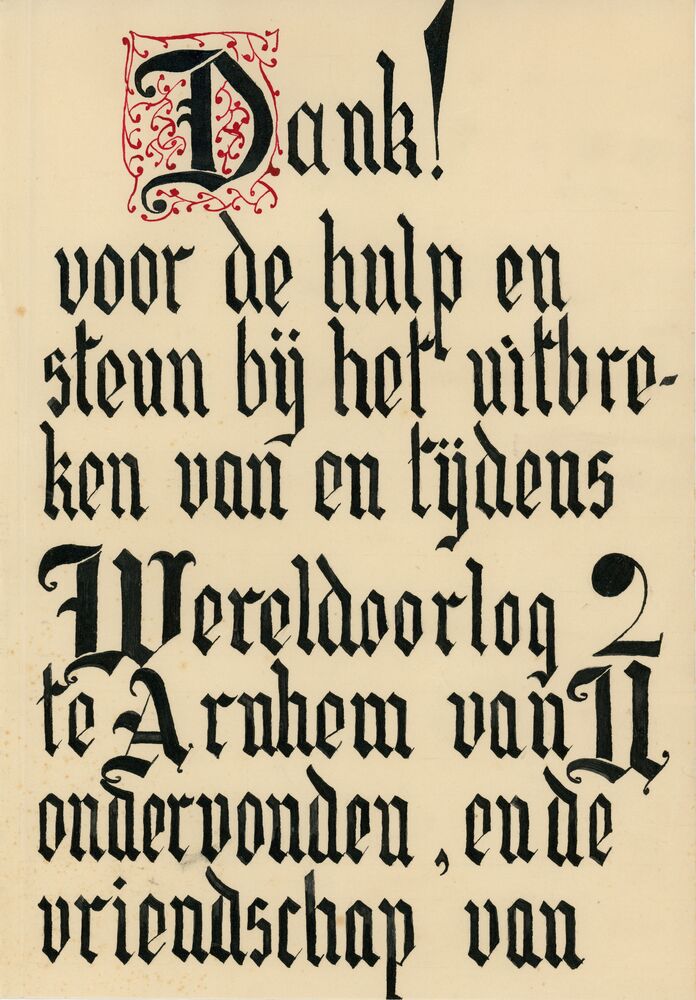 Dank!
voor de hulp en
steun bij het uitbre-
ken van en tijdens
Wereldoorlog 2
te Arnhem van U
ondervonden, en de
vriendschap van